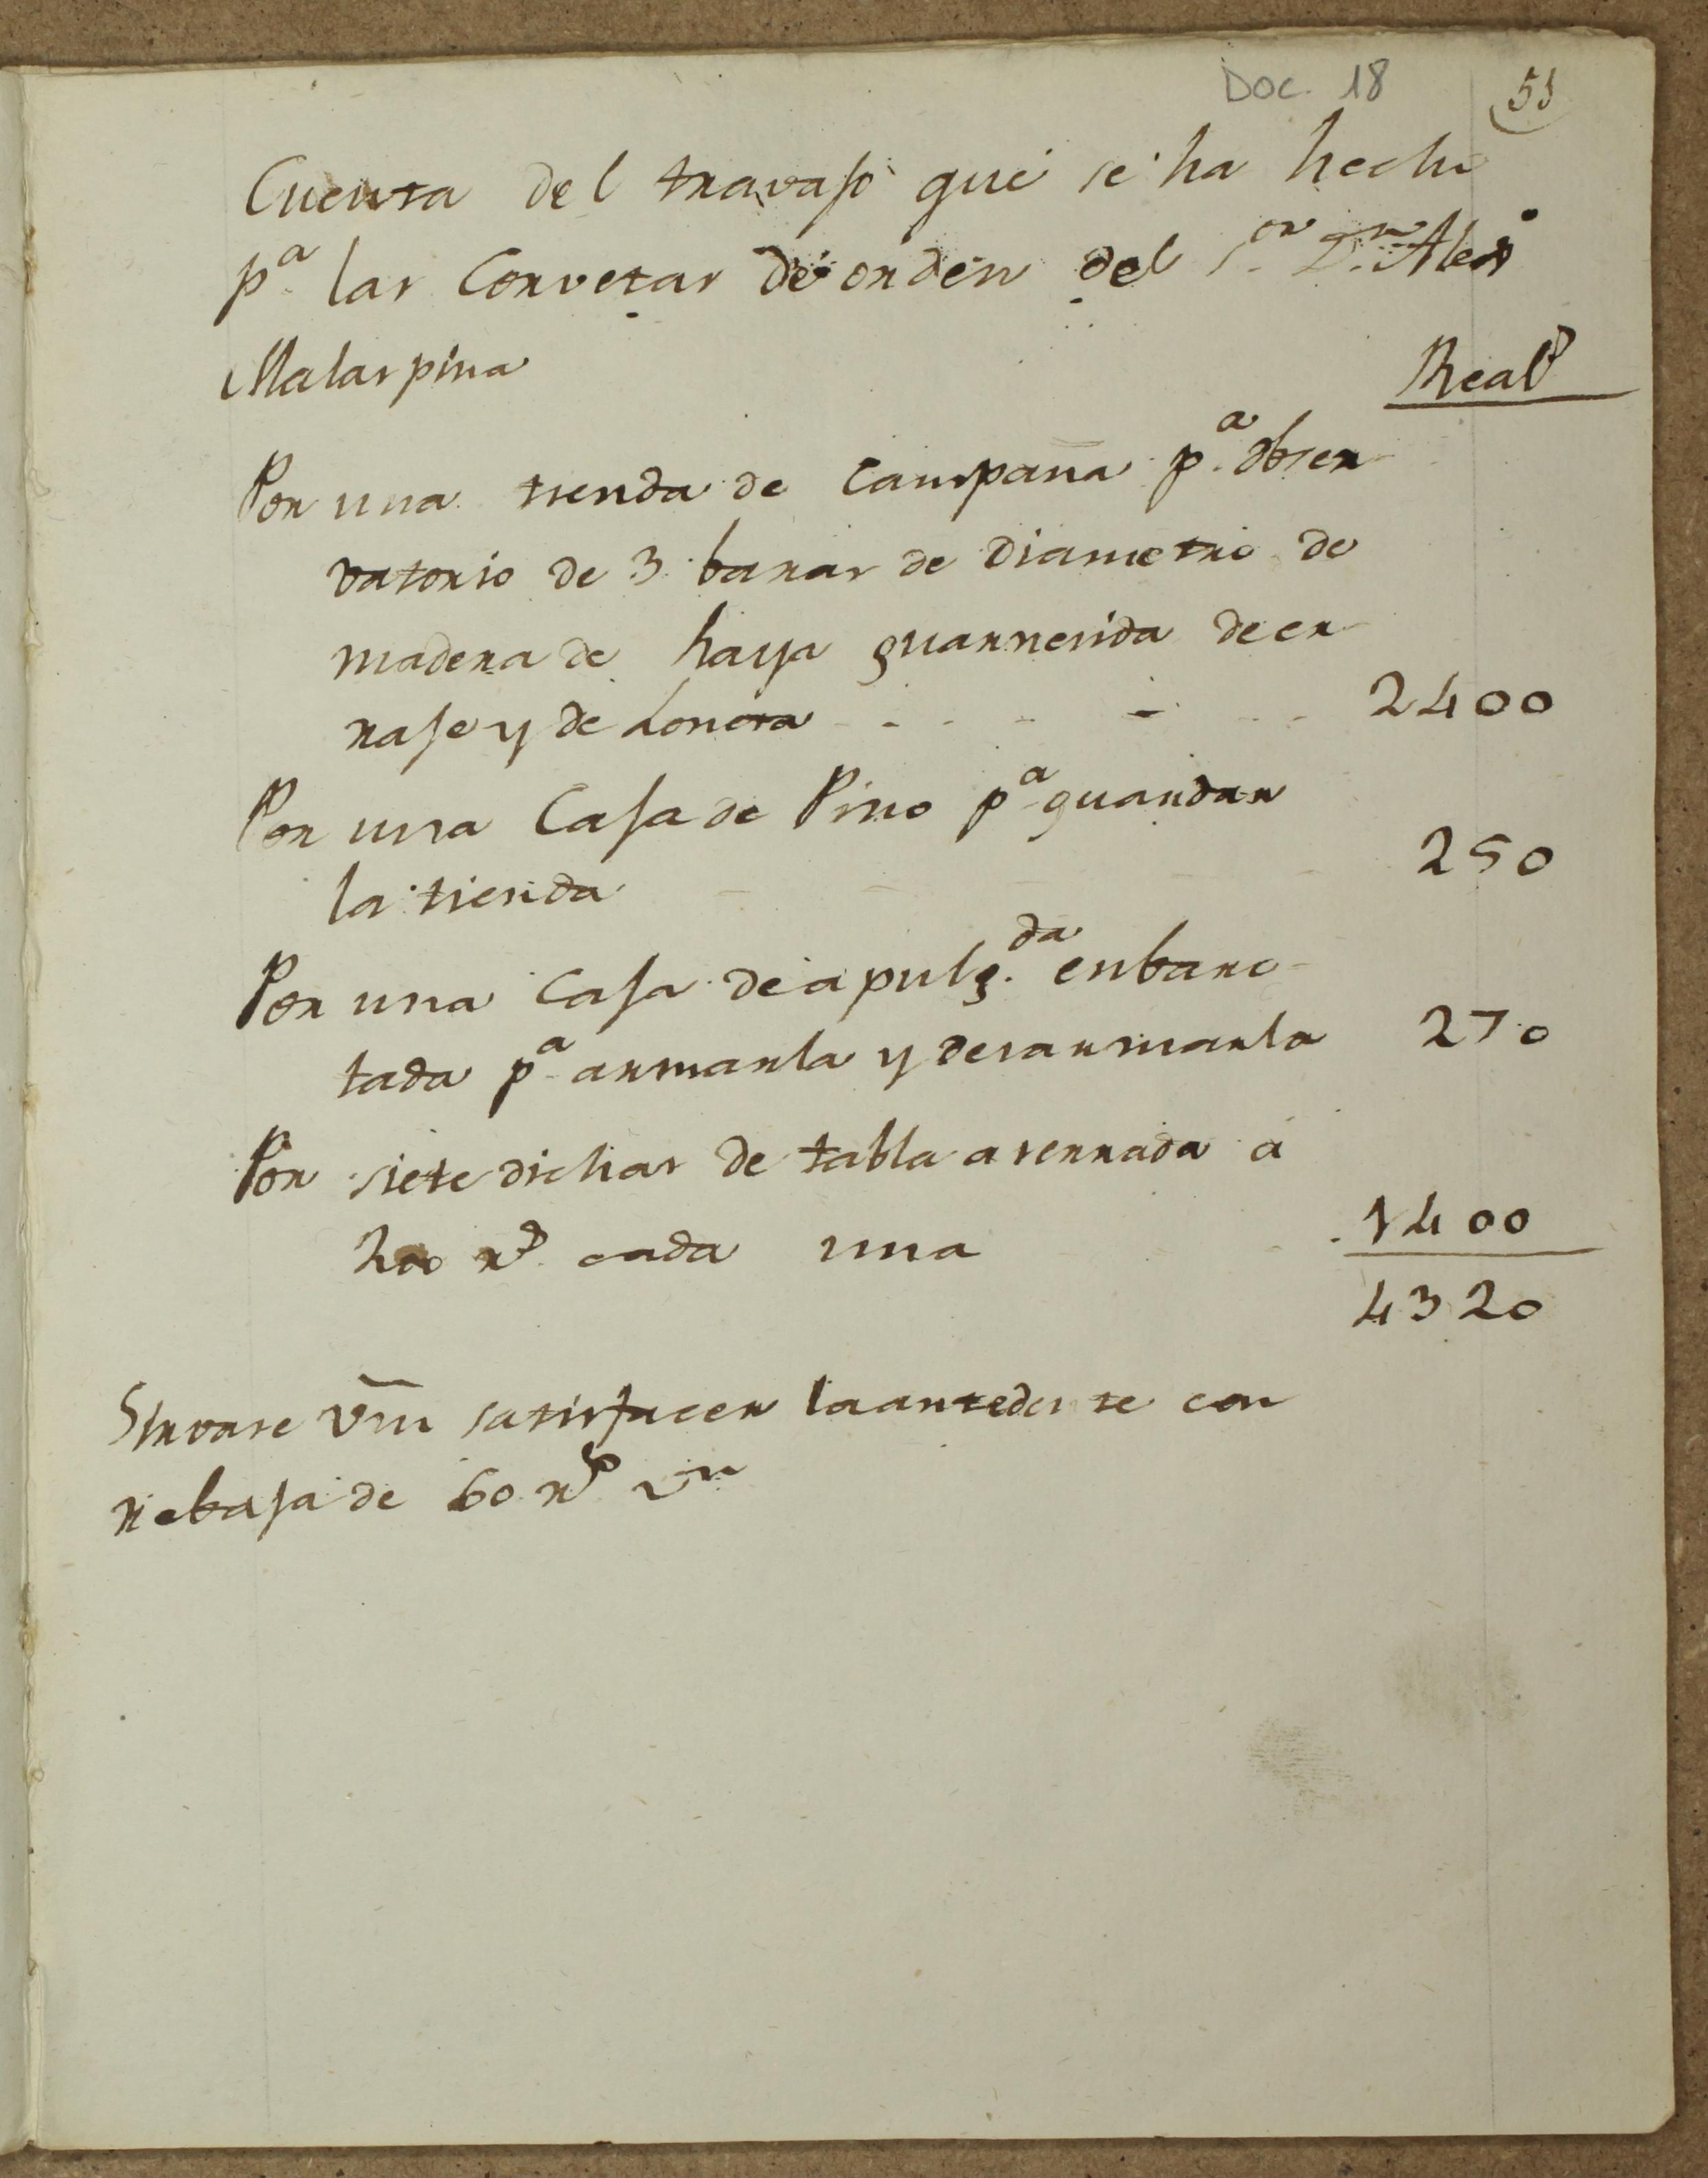 Doc. 18
51
Cuenta del travajo que se ha hecho
pª las Corvetas de orden del Sor Dn Alexº
Malaspina
Reals
Por una tienda de Campaña pª obser
vatorio de 3 baras de Diametro de
madera de haya guarnerida de er
raje y de Loneta 2400
Por una Caja de Pino pª guardar
la tienda 250
Por una Caja de a pulgda enbaro
tada pª armarla y desarmarla 270
Por siete dichas de tabla aserrada a
200 rs cada una 1400
4320
Sirvase Vm satisfacer la antedente con
rebaja de 60 rs vn